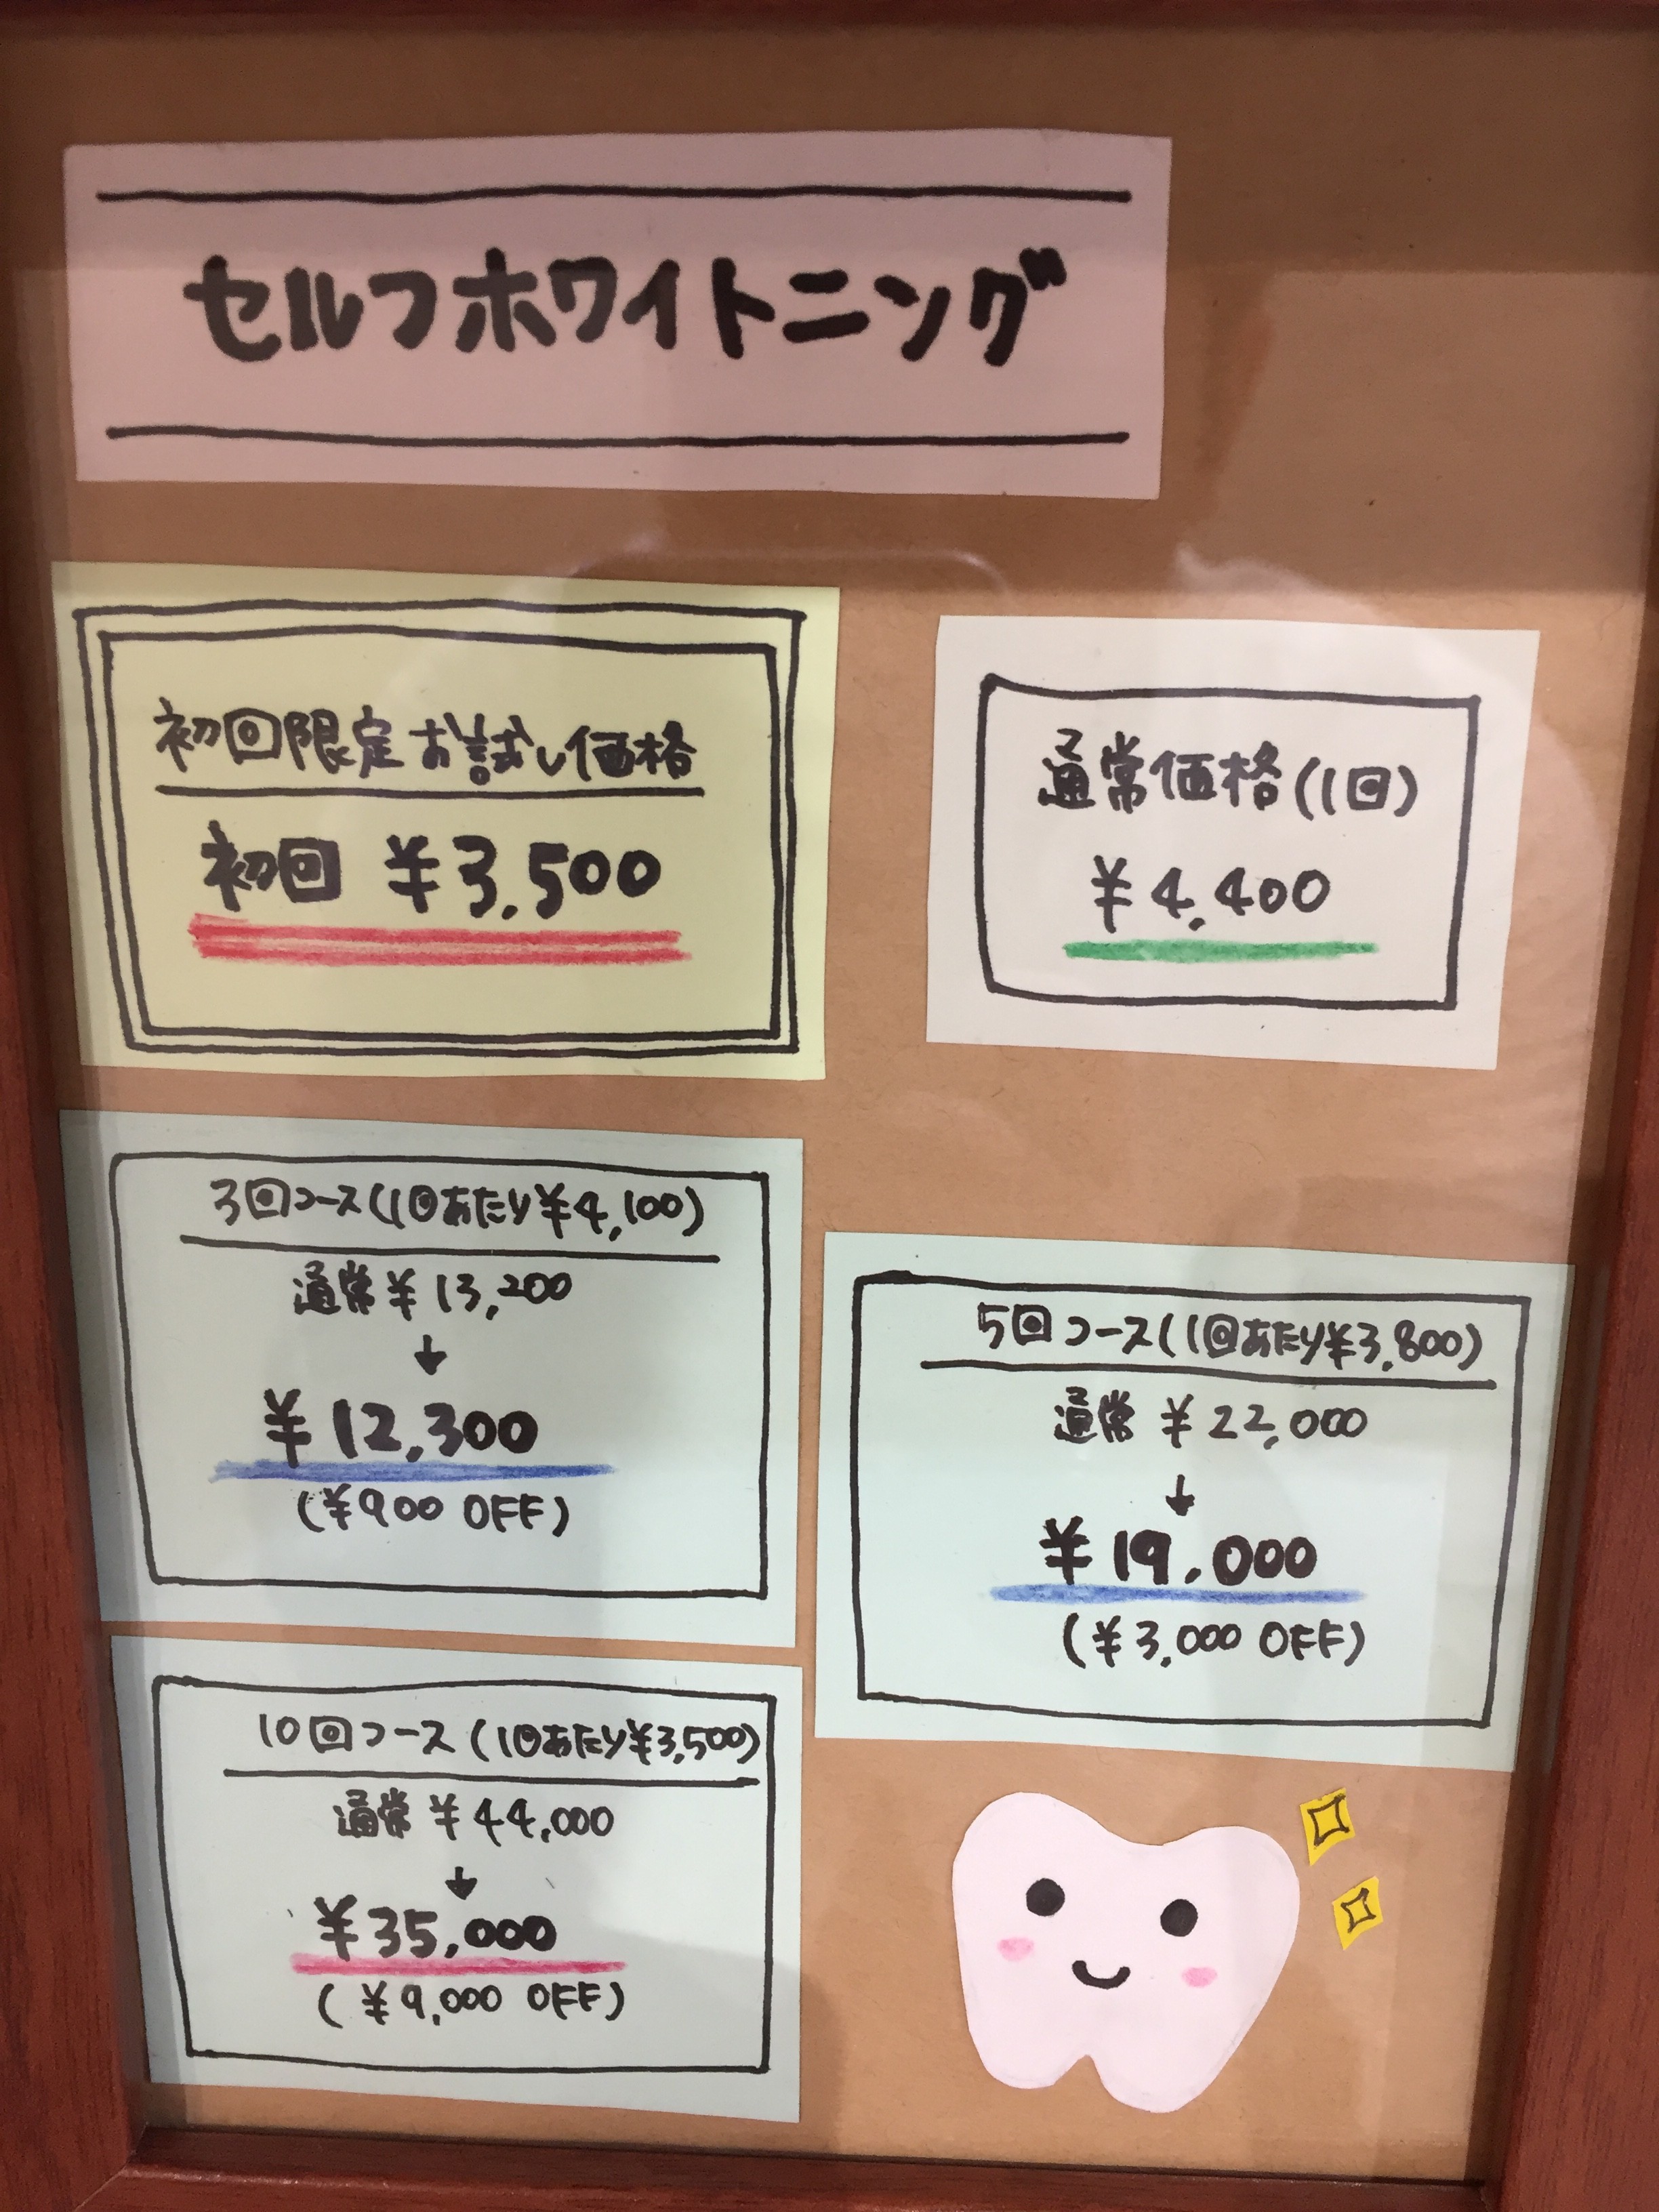 セルフホワイトニング
初回限定お試し価格
初回 ¥3,500
通常価格(1回)
¥4,400
3回コース(1回あたり¥4,100)
通常¥13,200
↓
¥12,300
(¥900 OFF)
5回コース(1回あたり¥3,800)
通常 ¥22,000
↓
¥19,000
(¥3,000 OFF)
10回コース(1回あたり¥3,500)
通常 ¥44,000
↓
¥35,000
(¥9,000 OFF)